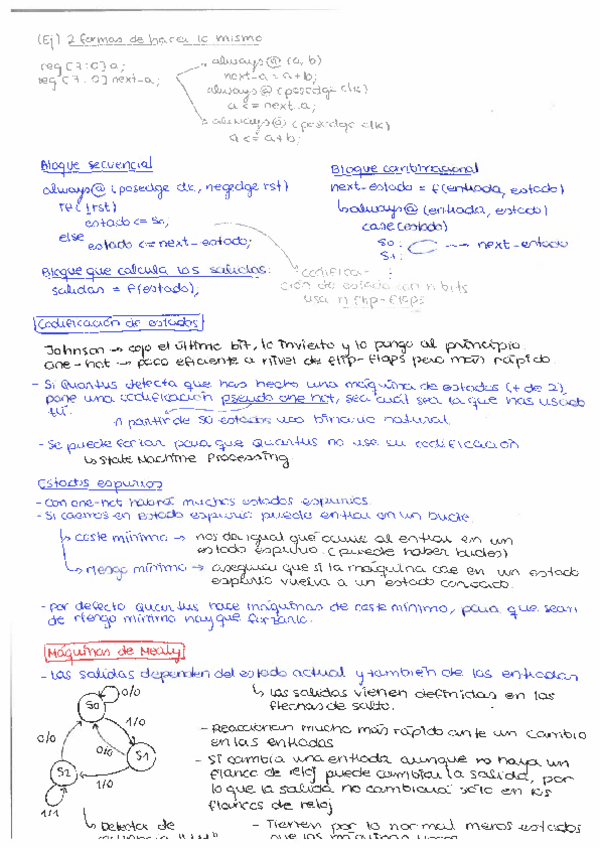 (Ej) 2 formas de hacer lo mismo
reg [7:0] a;
reg [7:0] next_a;
always @ (a, b)
next_a = a+b;
always @ (posedge clk)
a <= next_a;
always @ (posedge clk)
a <= a+b;
Bloque secuencial
always @ (posedge clk, negedge rst)
if (!rst)
estado <= S0;
else
estado <= next_estado;
Bloque que calcula las salidas:
salidas = f(estado);
Bloque combinacional
next_estado = f(entrada, estado)
always @ (entrada, estado)
case (estado)
S0: → next_estado
S1:
codifica-
ción de estado con n bits
usa n flip-flops
Codificación de estados
Johnson → cojo el último bit, lo invierto y lo pongo al principio
one-hot → poco eficiente a nivel de flip-flops pero más rápido.
- Si Quartus detecta que has hecho una máquina de estados (+ de 2),
pone una codificación pseudo one hot, sea cuál sea la que has usado
tú.
A partir de 50 estados uso binario natural.
- Se puede forzar para que Quartus no use su codificación
↳ State Machine Processing
Estados espurios
- Con one-hot habrá muchos estados espurios.
- Si caemos en estado espurio puede entrar en un bucle.
↳ coste mínimo → nos da igual qué ocurre al entrar en un
estado espurio. (puede haber bucles)
↳ riesgo mínimo → asegurar que si la máquina cae en un estado
espurio vuelva a un estado conocido.
- Por defecto Quartus hace máquinas de coste mínimo, para que sean
de riesgo mínimo hay que forzarlo.
Máquinas de Mealy
- Las salidas dependen del estado actual y también de las entradas
↳ Las salidas vienen definidas en las
flechas de salto.
- Reaccionan mucho más rápido ante un cambio
en las entradas
- Si cambia una entrada aunque no haya un
flanco de reloj puede cambiar la salida, por
lo que la salida no cambiará sólo en los
flancos de reloj
S0
0/0
1/0
0/0
0/0
S1
S2
1/0
1/1
↳ Detector de
- Tienen por lo normal menos estados
que las máquinas